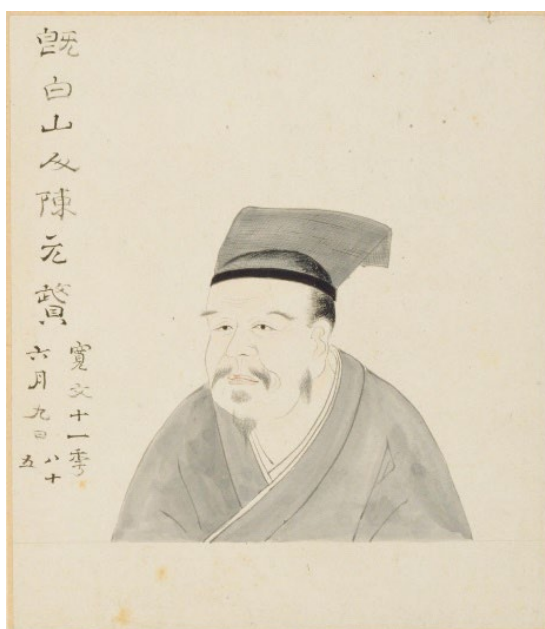 既白山人陳元贇
寛文十一季
六月九日 八十
五